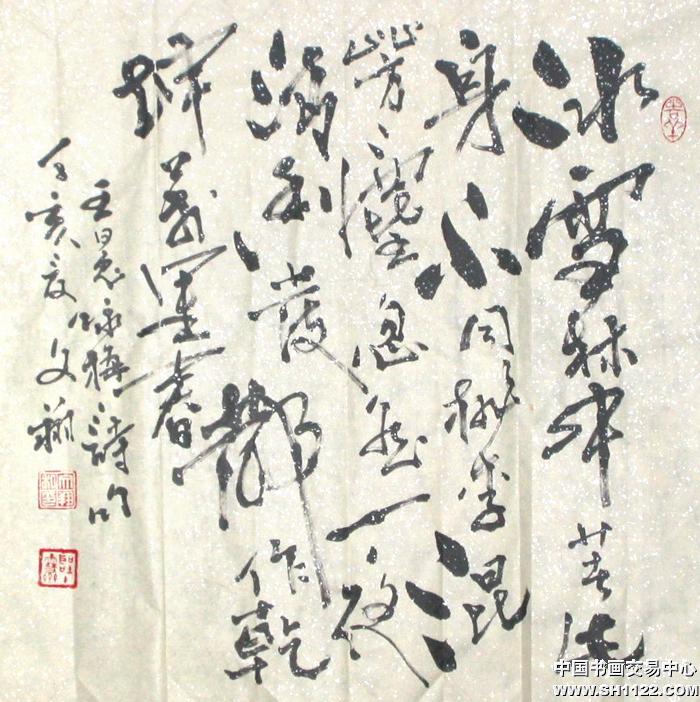 冰雪林中著此
身不同桃李混
芳塵忽然一夜
清香發散作乾
坤萬里春
王冕詠梅詩
丁亥夏文
中国书画交易中心
www.SH1122.com